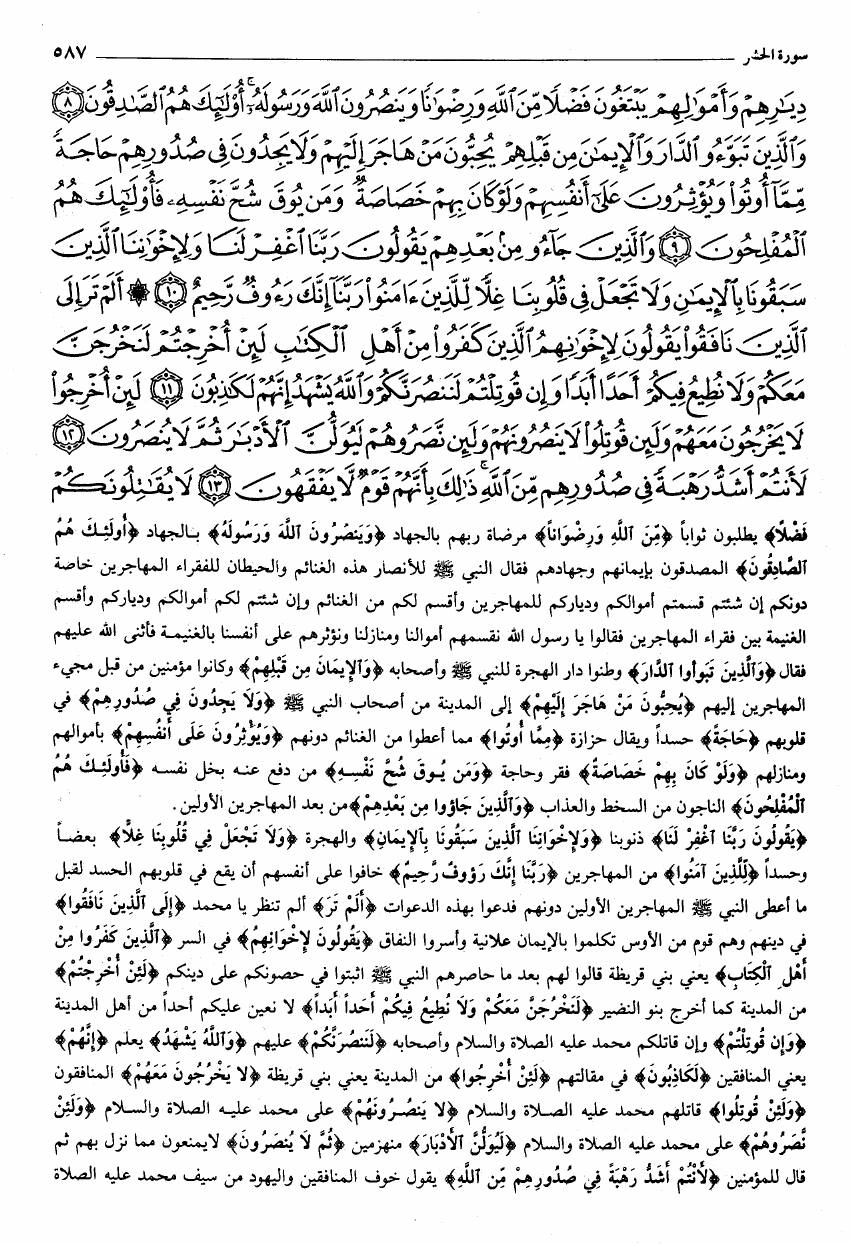 سورة الحشر ٥٨٧
دِيَٰرِهِمْ وَأَمْوَٰلِهِمْ يَبْتَغُونَ فَضْلًا مِّنَ ٱللَّهِ وَرِضْوَٰنًا وَيَنصُرُونَ ٱللَّهَ وَرَسُولَهُۥٓ ۚ أُو۟لَٰٓئِكَ هُمُ ٱلصَّٰدِقُونَ ﴿٨﴾
وَٱلَّذِينَ تَبَوَّءُو ٱلدَّارَ وَٱلْإِيمَٰنَ مِن قَبْلِهِمْ يُحِبُّونَ مَنْ هَاجَرَ إِلَيْهِمْ وَلَا يَجِدُونَ فِى صُدُورِهِمْ حَاجَةً
مِّمَّآ أُوتُوا۟ وَيُؤْثِرُونَ عَلَىٰٓ أَنفُسِهِمْ وَلَوْ كَانَ بِهِمْ خَصَاصَةٌ ۚ وَمَن يُوقَ شُحَّ نَفْسِهِۦ فَأُو۟لَٰٓئِكَ هُمُ
ٱلْمُفْلِحُونَ ﴿٩﴾ وَٱلَّذِينَ جَآءُو مِنۢ بَعْدِهِمْ يَقُولُونَ رَبَّنَا ٱغْفِرْ لَنَا وَلِإِخْوَٰنِنَا ٱلَّذِينَ
سَبَقُونَا بِٱلْإِيمَٰنِ وَلَا تَجْعَلْ فِى قُلُوبِنَا غِلًّا لِّلَّذِينَ ءَامَنُوا۟ رَبَّنَآ إِنَّكَ رَءُوفٌ رَّحِيمٌ ﴿١٠﴾ ۞ أَلَمْ تَرَ إِلَى
ٱلَّذِينَ نَافَقُوا۟ يَقُولُونَ لِإِخْوَٰنِهِمُ ٱلَّذِينَ كَفَرُوا۟ مِنْ أَهْلِ ٱلْكِتَٰبِ لَئِنْ أُخْرِجْتُمْ لَنَخْرُجَنَّ
مَعَكُمْ وَلَا نُطِيعُ فِيكُمْ أَحَدًا أَبَدًا وَإِن قُوتِلْتُمْ لَنَنصُرَنَّكُمْ وَٱللَّهُ يَشْهَدُ إِنَّهُمْ لَكَٰذِبُونَ ﴿١١﴾ لَئِنْ أُخْرِجُوا۟
لَا يَخْرُجُونَ مَعَهُمْ وَلَئِن قُوتِلُوا۟ لَا يَنصُرُونَهُمْ وَلَئِن نَّصَرُوهُمْ لَيُوَلُّنَّ ٱلْأَدْبَٰرَ ثُمَّ لَا يُنصَرُونَ ﴿١٢﴾
لَأَنتُمْ أَشَدُّ رَهْبَةً فِى صُدُورِهِم مِّنَ ٱللَّهِ ۚ ذَٰلِكَ بِأَنَّهُمْ قَوْمٌ لَّا يَفْقَهُونَ ﴿١٣﴾ لَا يُقَٰتِلُونَكُمْ
فَضْلاً﴾ يطلبون ثواباً ﴿مِّنَ ٱللَّهِ وَرِضْوَاناً﴾ مرضاة ربهم بالجهاد ﴿وَيَنصُرُونَ ٱللَّهَ وَرَسُولَهُ﴾ بالجهاد ﴿أُولَئِكَ هُمُ
ٱلصَّادِقُونَ﴾ المصدقون بإيمانهم وجهادهم فقال النبي ﷺ للأنصار هذه الغنائم والحيطان للفقراء المهاجرين خاصة
دونكم إن شئتم قسمتم أموالكم ودياركم للمهاجرين وأقسم لكم من الغنائم وإن شئتم لكم أموالكم ودياركم وأقسم
الغنيمة بين فقراء المهاجرين فقالوا يا رسول الله نقسمهم أموالنا ومنازلنا ونؤثرهم على أنفسنا بالغنيمة فأثنى الله عليهم
فقال ﴿وَٱلَّذِينَ تَبَوأوا ٱلدَّارَ﴾ وطنوا دار الهجرة للنبي ﷺ وأصحابه ﴿وَٱلإِيمَانَ مِن قَبْلِهِمْ﴾ وكانوا مؤمنين من قبل مجيء
المهاجرين إليهم ﴿يُحِبُّونَ مَنْ هَاجَرَ إِلَيْهِمْ﴾ إلى المدينة من أصحاب النبي ﷺ ﴿وَلاَ يَجِدُونَ فِي صُدُورِهِمْ﴾ في
قلوبهم ﴿حَاجَةً﴾ حسداً ويقال حزازة ﴿مِمَّا أُوتُوا﴾ مما أعطوا من الغنائم دونهم ﴿وَيُؤْثِرُونَ عَلَى أَنفُسِهِمْ﴾ بأموالهم
ومنازلهم ﴿وَلَوْ كَانَ بِهِمْ خَصَاصَةٌ﴾ فقر وحاجة ﴿وَمَن يُوقَ شُحَّ نَفْسِهِ﴾ من دفع عنه بخل نفسه ﴿فَأُولَئِكَ هُمُ
ٱلْمُفْلِحُونَ﴾ الناجون من السخط والعذاب ﴿وَٱلَّذِينَ جَاؤُوا مِن بَعْدِهِمْ﴾ من بعد المهاجرين الأولين.
﴿يَقُولُونَ رَبَّنَا ٱغْفِرْ لَنَا﴾ ذنوبنا ﴿وَلإِخْوَانِنَا ٱلَّذِينَ سَبَقُونَا بِٱلإِيمَانِ﴾ والهجرة ﴿وَلاَ تَجْعَلْ فِي قُلُوبِنَا غِلاًّ﴾ بغضاً
وحسداً ﴿لِّلَّذِينَ آمَنُوا﴾ من المهاجرين ﴿رَبَّنَا إِنَّكَ رَؤُوفٌ رَّحِيمٌ﴾ خافوا على أنفسهم أن يقع في قلوبهم الحسد لقبل
ما أعطى النبي ﷺ المهاجرين الأولين دونهم فدعوا بهذه الدعوات ﴿أَلَمْ تَرَ﴾ ألم تنظر يا محمد ﴿إِلَى ٱلَّذِينَ نَافَقُوا﴾
في دينهم وهم قوم من الأوس تكلموا بالإيمان علانية وأسروا النفاق ﴿يَقُولُونَ لإِخْوَانِهِمُ﴾ في السر ﴿ٱلَّذِينَ كَفَرُوا مِنْ
أَهْلِ ٱلْكِتَابِ﴾ يعني بني قريظة قالوا لهم بعد ما حاصرهم النبي ﷺ اثبتوا في حصونكم على دينكم ﴿لَئِنْ أُخْرِجْتُمْ﴾
من المدينة كما أخرج بنو النضير ﴿لَنَخْرُجَنَّ مَعَكُمْ وَلاَ نُطِيعُ فِيكُمْ أَحَداً أَبَداً﴾ لا نعين عليكم أحداً من أهل المدينة
﴿وَإِن قُوتِلْتُمْ﴾ وإن قاتلكم محمد عليه الصلاة والسلام وأصحابه ﴿لَنَنصُرَنَّكُمْ﴾ عليهم ﴿وَٱللَّهُ يَشْهَدُ﴾ يعلم ﴿إِنَّهُمْ﴾
يعني المنافقين ﴿لَكَاذِبُونَ﴾ في مقالتهم ﴿لَئِنْ أُخْرِجُوا﴾ من المدينة يعني بني قريظة ﴿لاَ يَخْرُجُونَ مَعَهُمْ﴾ المنافقون
﴿وَلَئِن قُوتِلُوا﴾ قاتلهم محمد عليه الصلاة والسلام ﴿لاَ يَنصُرُونَهُمْ﴾ على محمد عليه الصلاة والسلام ﴿وَلَئِنْ
نَّصَرُوهُمْ﴾ على محمد عليه الصلاة والسلام ﴿لَيُوَلُّنَّ ٱلأَدْبَارَ﴾ منهزمين ﴿ثُمَّ لاَ يُنصَرُونَ﴾ لايمنعون مما نزل بهم ثم
قال للمؤمنين ﴿لأَنْتُمْ أَشَدُّ رَهْبَةً فِي صُدُورِهِمْ مِّنَ ٱللَّهِ﴾ يقول خوف المنافقين واليهود من سيف محمد عليه الصلاة